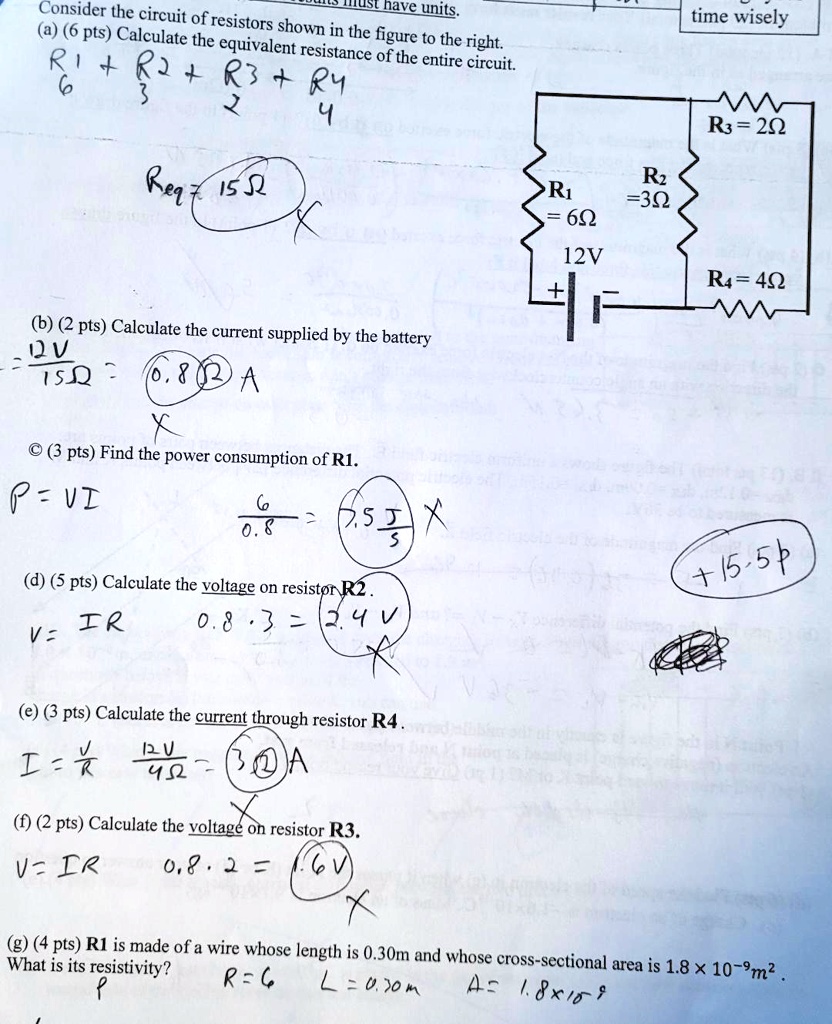 must have units.
time wisely
Consider the circuit of resistors shown in the figure to the right.
(a) (6 pts) Calculate the equivalent resistance of the entire circuit.
R1 + R2 + R3 + R4
6 3 2 4
Req = 15 Ω
X
R3 = 2Ω
R1
= 6Ω
R2
=3Ω
12V
+ −
R4 = 4Ω
(b) (2 pts) Calculate the current supplied by the battery
= 12 V / 15 Ω = 0.8 Ω A
X
© (3 pts) Find the power consumption of R1.
P = VI 6 / 0.8 = 7.5 J/s X
+ 15.5p
(d) (5 pts) Calculate the voltage on resistor R2.
V = IR 0.8 . 3 = 2.4 V
X
(e) (3 pts) Calculate the current through resistor R4.
I = V/R 12 V / 4 Ω = 3 Ω A
X
(f) (2 pts) Calculate the voltage on resistor R3.
V = IR 0.8 . 2 = 1.6 V
X
(g) (4 pts) R1 is made of a wire whose length is 0.30m and whose cross-sectional area is 1.8 × 10⁻⁹m² .
What is its resistivity?
ρ R = 6 L = 0.30m A = 1.8x10⁻⁹